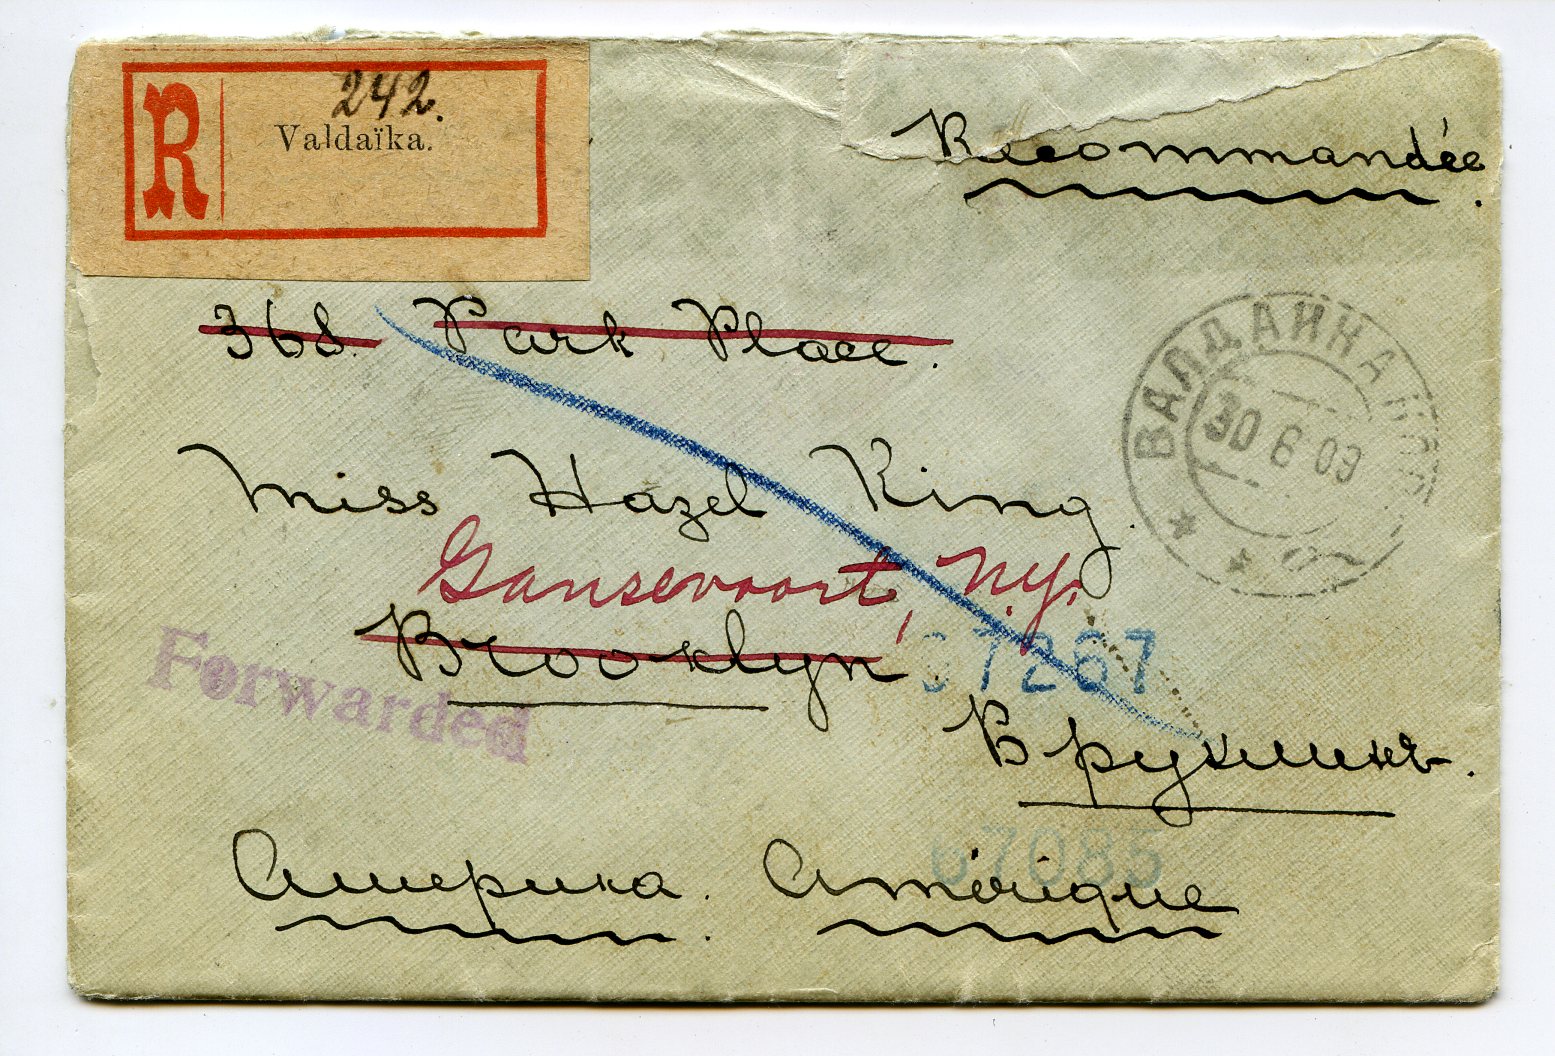 R
242.
Valdaïka.
Recommandée
368. Park Place.
ВАЛДАЙКА
30 6 09
Miss Hazel King.
Gansevoort, N.Y.
Brooklyn
97267
Forwarded
Бруклинъ.
67085
Америка. Amérique